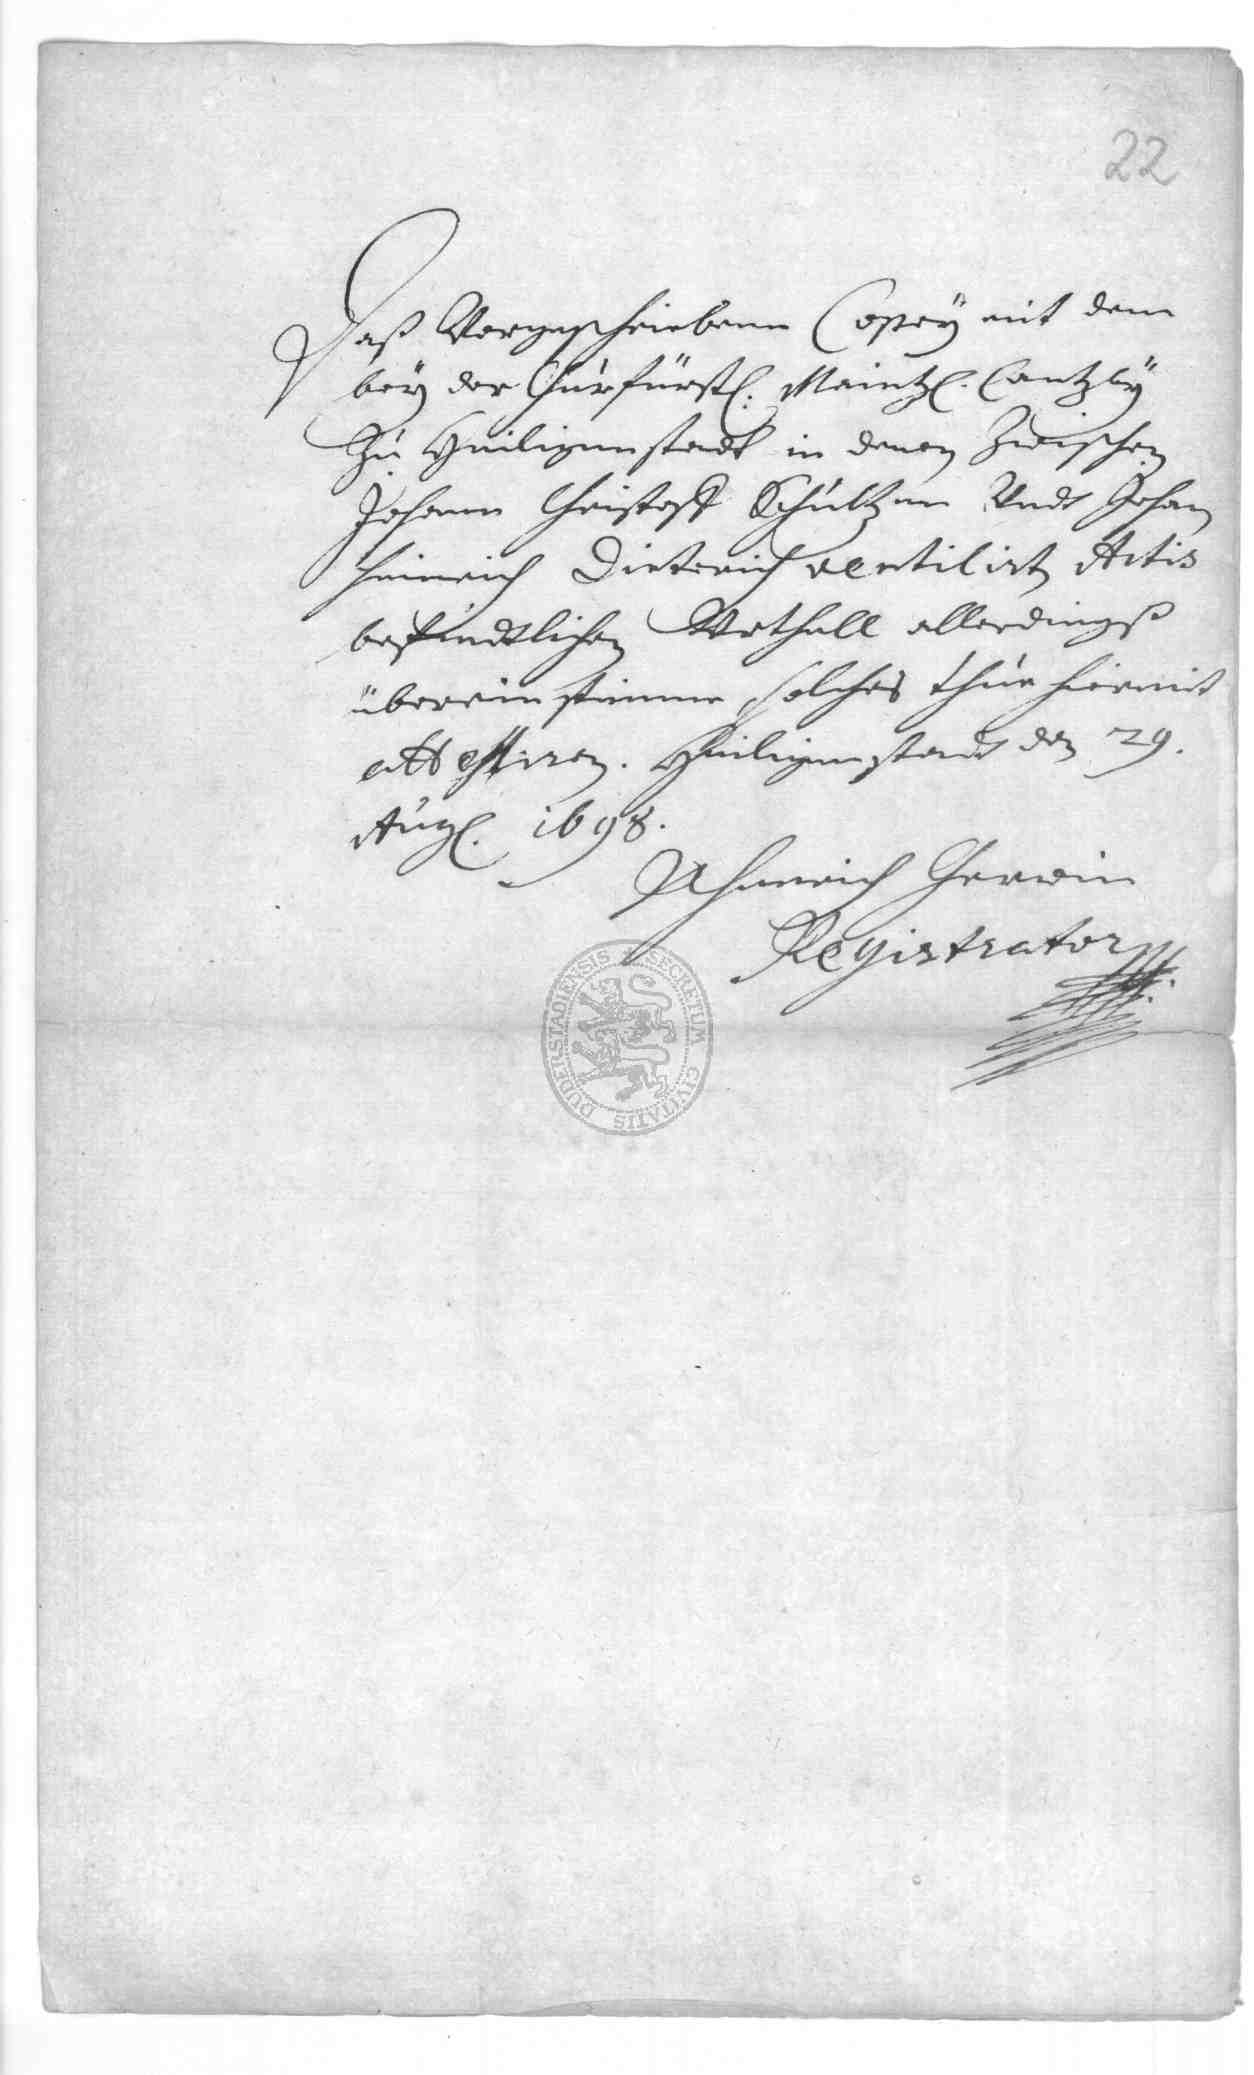 22
Daß Vorgeschriebene Copey mit dem
bey der Churfürstl: Maintzl. Cantzley
Zu Heiligenstadt in denen Zwischen
Johann Christoff Schultzen Undt Johan
Heinrich Dieterich ventilirten Actis
befindtlichen Urtheill allerdingß
übereinstimme solches thue hiermit
attestiren. Heiligenstadt den 29.
Aug. 1698.
Heinrich
Registrator
SECRETUM CIVITATIS DUDERSTADIENSIS